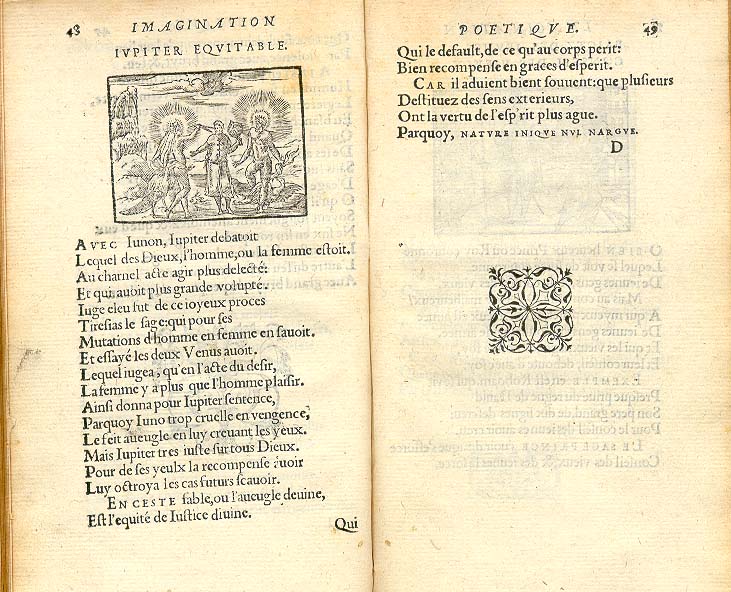 48 IMAGINATION
IVPITER EQVITABLE.
AVEC Iunon, Iupiter debatoit
Lequel des Dieux, l'homme, ou la femme estoit.
Au charnel acte agir plus delecté:
Et qui auoit plus grande volupté.
Iuge eleu fut de ce ioyeux proces
Tiresias le sage: qui pour ses
Mutations d'homme en femme en sauoit.
Et essayé les deux Venus auoit.
Lequel iugea, qu'en l'acte du desir,
La femme y a plus que l'homme plaisir.
Ainsi donna pour Iupiter sentence,
Parquoy Iuno trop cruelle en vengence,
Le feit aueugle en luy creuant les yeux.
Mais Iupiter tres iuste sur tous Dieux.
Pour de ses yeulx la recompense auoir
Luy octroya les cas futurs scauoir.
EN CESTE fable, ou l'aueugle deuine,
Est l'equité de Iustice diuine.
Qui
POETIQVE. 49
Qui le default, de ce qu'au corps perit:
Bien recompense en graces d'esperit.
CAR il aduient bient souuent: que plusieurs
Destituez des sens exterieurs,
Ont la vertu de l'esp'rit plus ague.
Parquoy, NATVRE INIQVE NVL NARGVE.
D